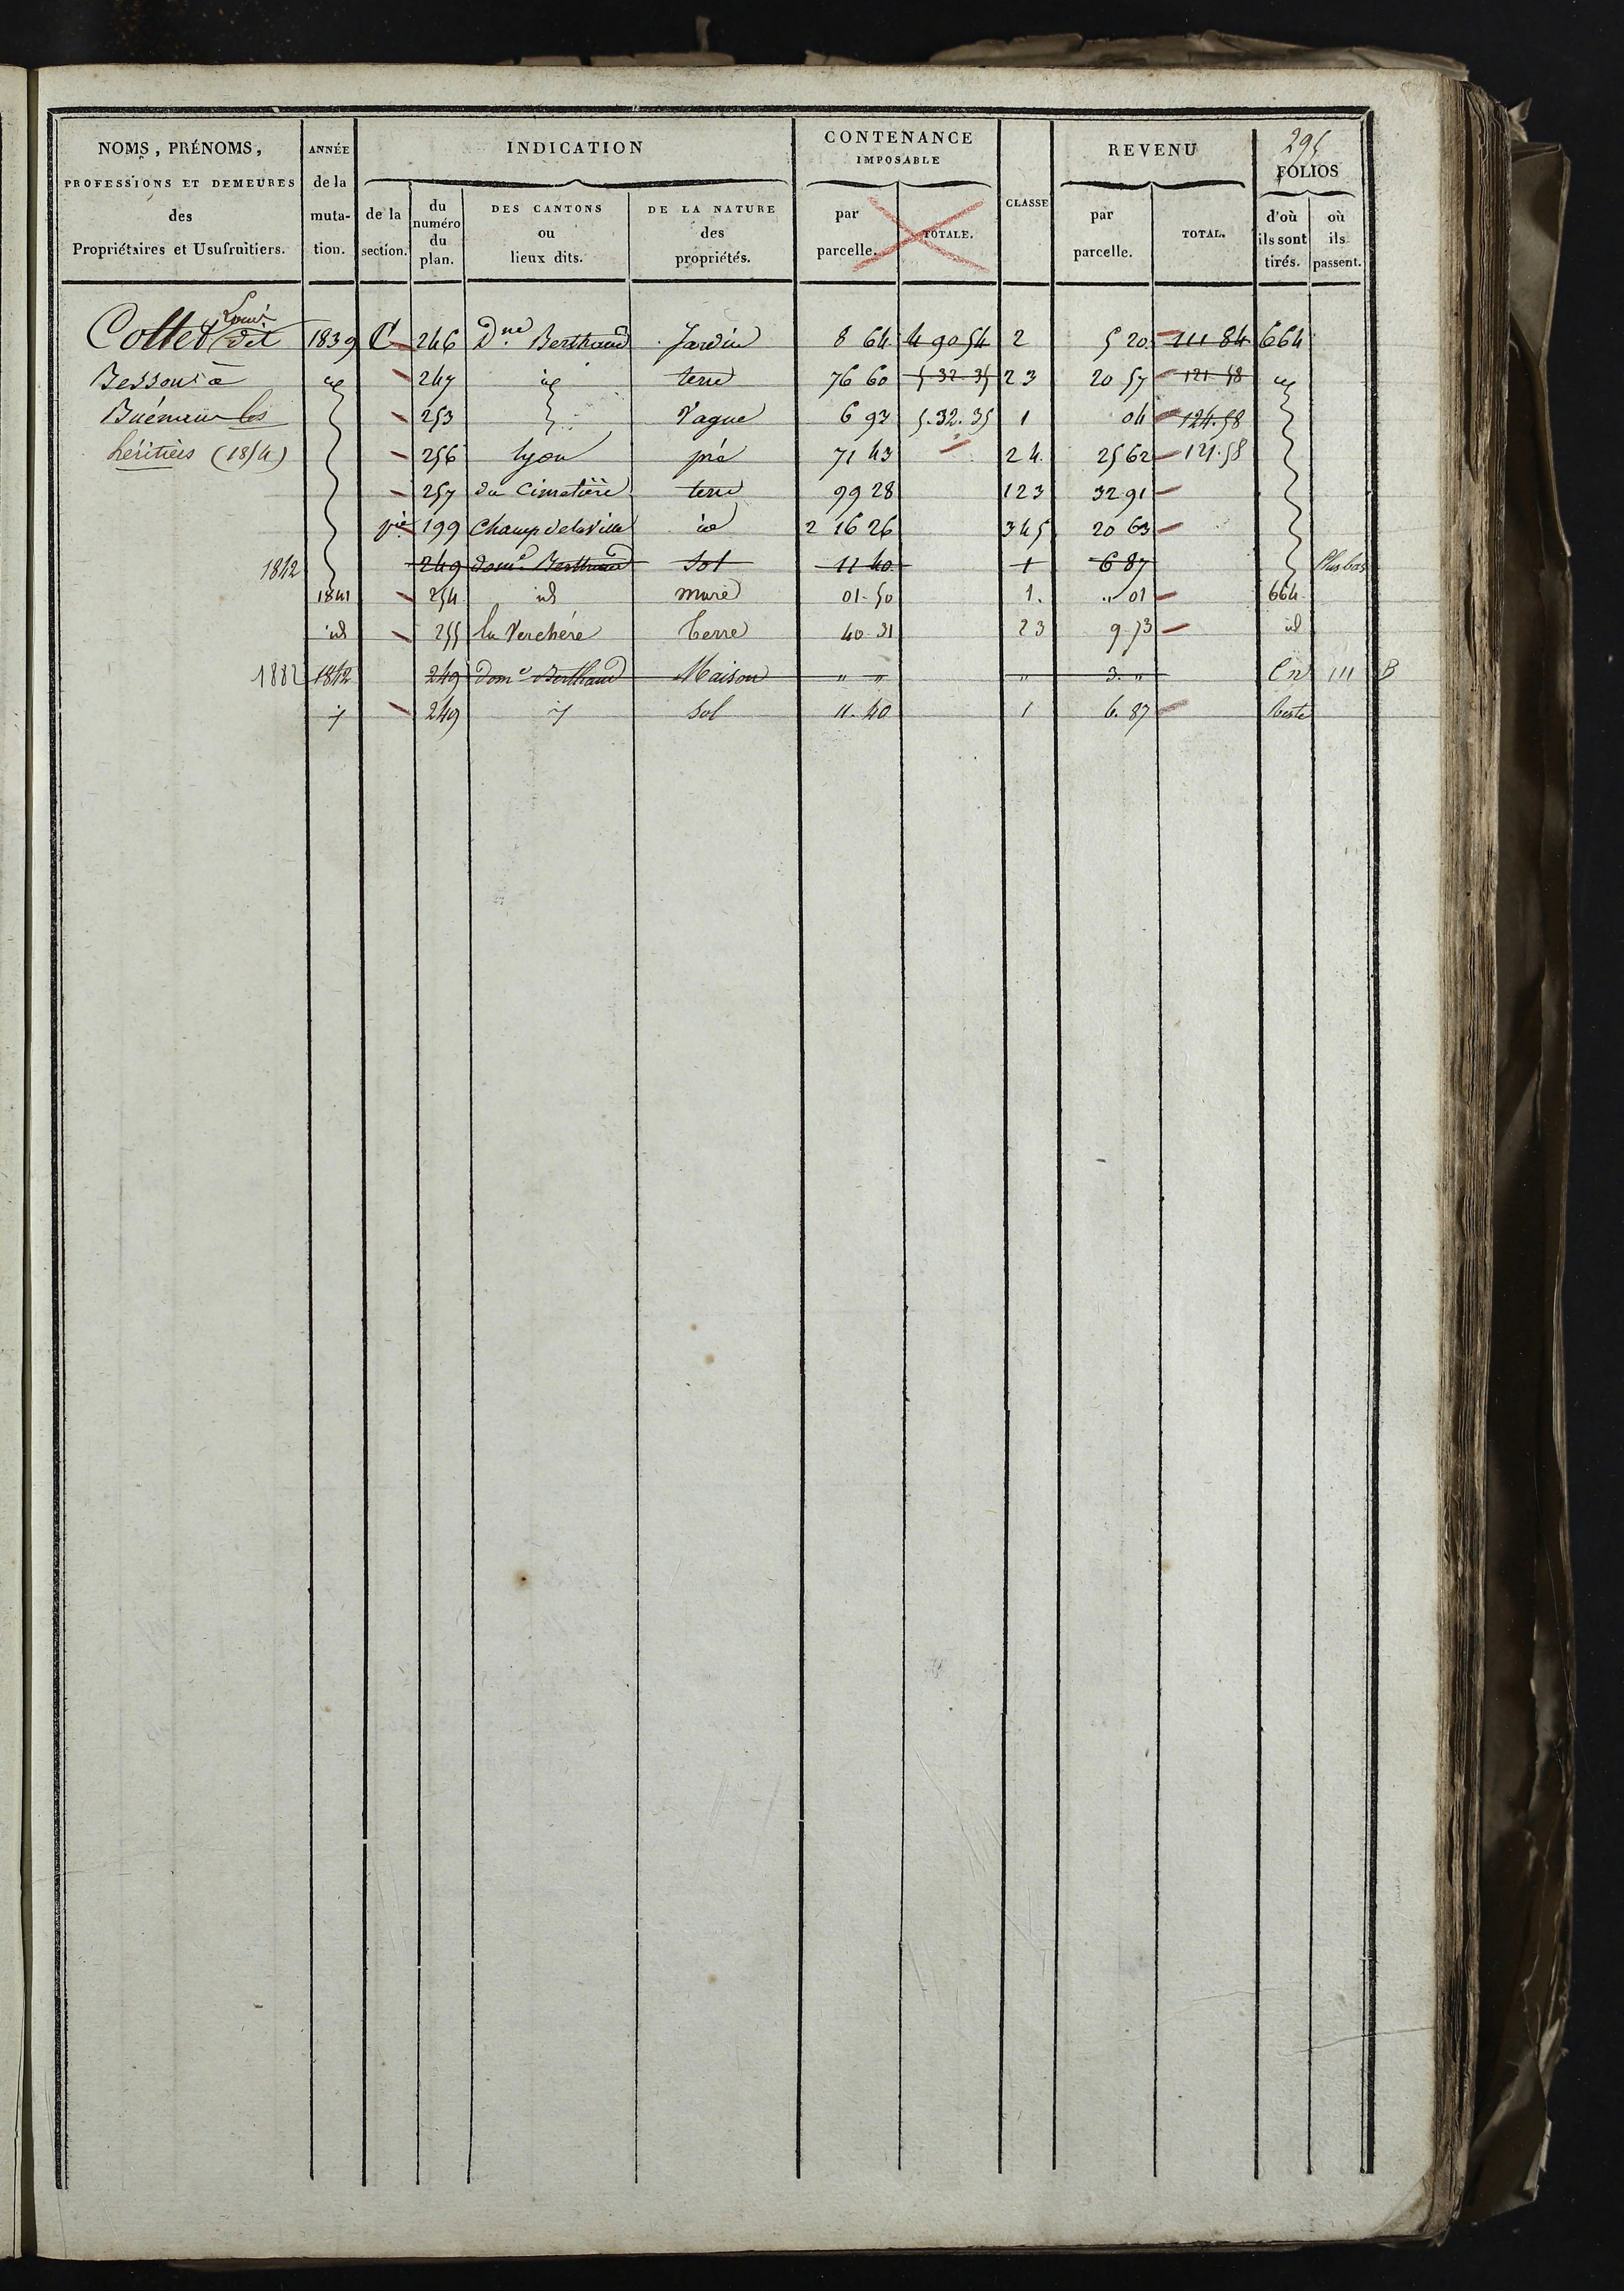 295
NOMS, PRÉNOMS, PROFESSIONS ET DEMEURES des Propriétaires et Usufruitiers.
ANNÉE de la mutation.
INDICATION
de la section.
du numéro du plan.
DES CANTONS ou lieux dits.
DE LA NATURE des propriétés.
CONTENANCE IMPOSABLE
par parcelle.
TOTALE.
CLASSE
REVENU
par parcelle.
TOTAL.
FOLIOS
d'où ils sont tirés.
où ils passent.
Louis
Cottet dit 1839 C 246 Dne Berthaud Jardin 8 64 4 90 54 2 5 20 111 84 664
Besson à id 247 id terre 76 60 5.32.35 2 3 20 57 121.58 id
les 253 Vague 6 93 5.32.35 1 04 124.58
héritiers (1854) 256 lyon pré 71 43 2 4 25 62 121.58
257 du Cimetière terre 99 28 1 2 3 32 91
pie 199 Champ de la Ville id 2 16 26 3 4 5 20 63
1842 249 dome Berthaud Sol 11 40 1 6 87 Plus bas
1841 254 id mare 01.50 1. " 01 664
id 255 la Verchère Terre 40 31 2 3 9.73 id
1882 1842 249 dome Berthaud Maison " " " 3. " Cn 111 B
id 249 id Sol 11.40 1 6.87 Reste